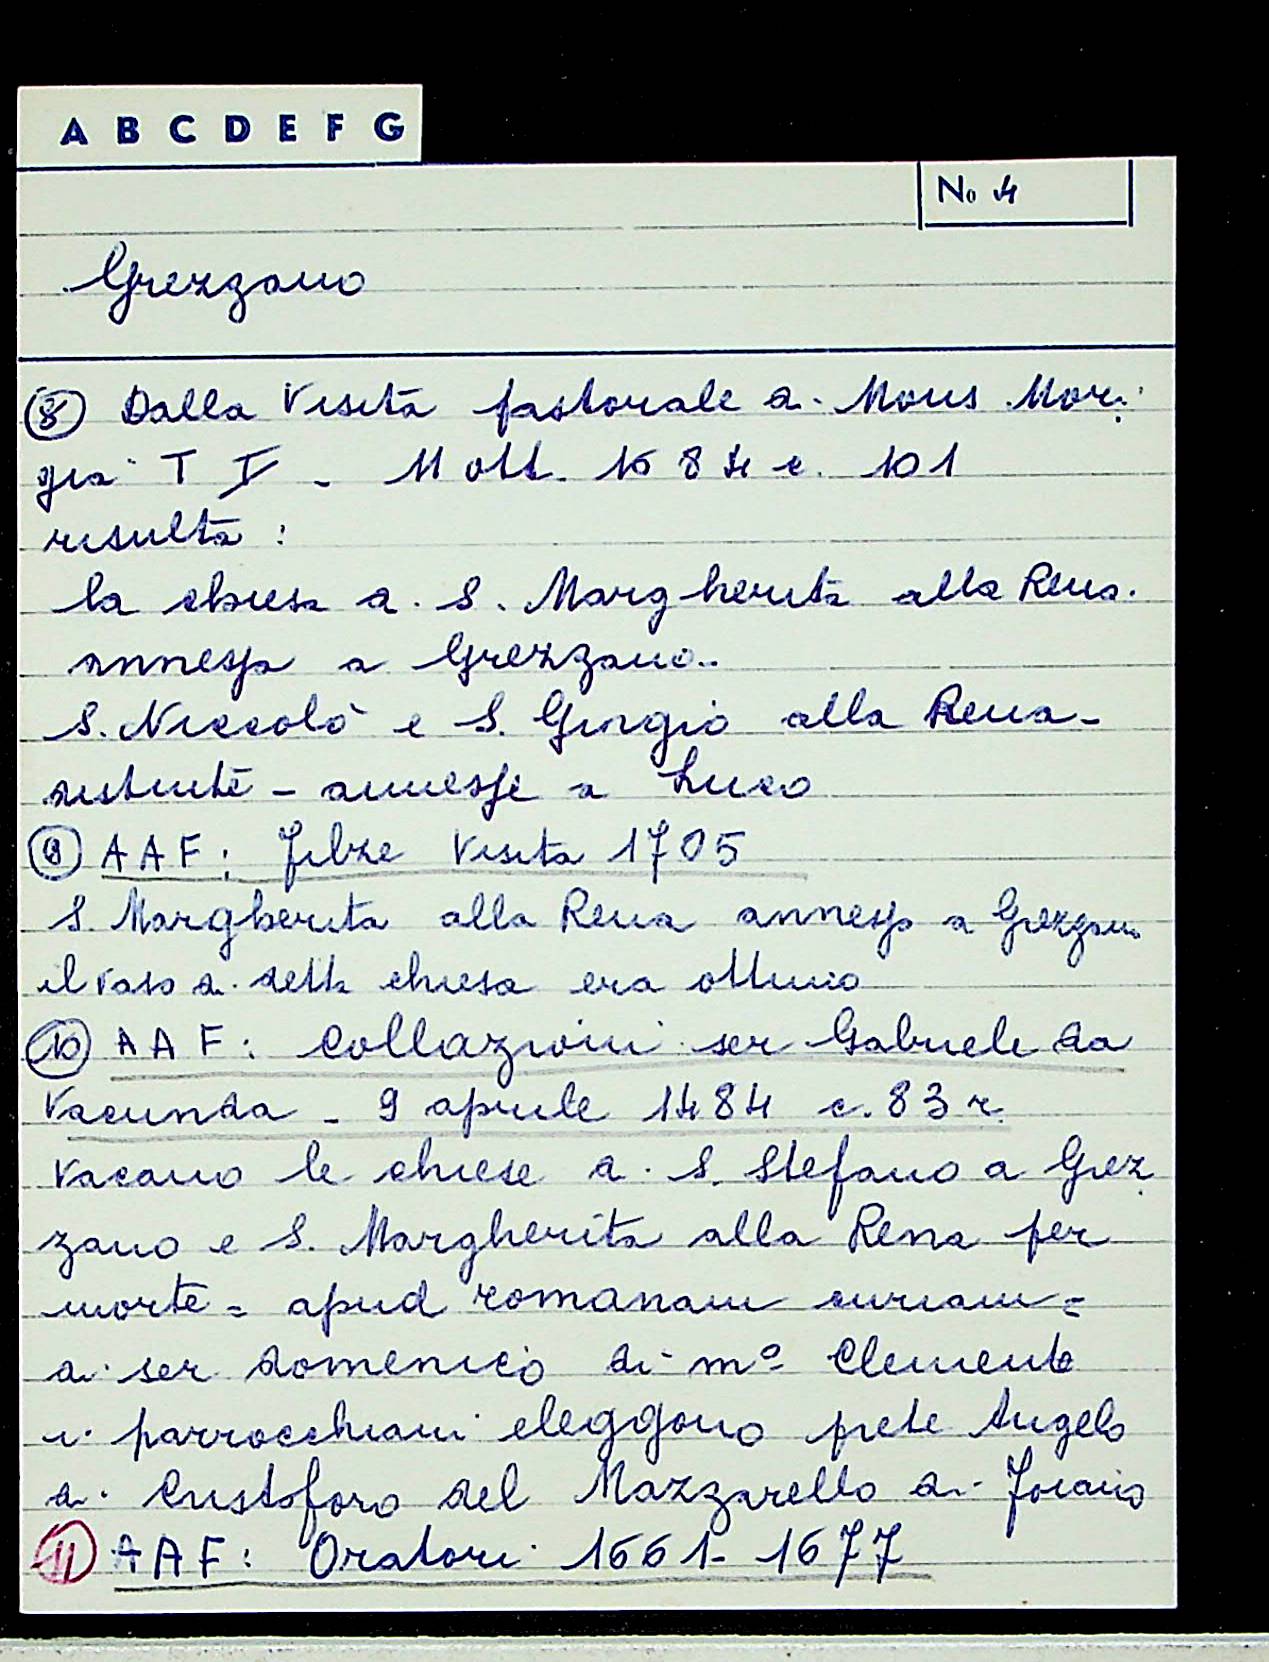 A B C D E F G
No 4
Grezzano
⑧ Dalla Visita pastorale di Mons Mori
gia T V - 11 ott. 1684 c. 101
risulta:
la chiesa di S. Margherita alla Rena
annessa a Grezzano..
S. Niccolò e S. Giorgio alla Rena -
distrutte - annesse a Luco
⑨ AAF: Filze Visita 1705
S. Margherita alla Rena annessa a Grezzano
il vaso di detta chiesa era ottimo
⑩ AAF: Collazioni ser Gabriele da
Vacunda - 9 aprile 1484 c. 83 r
Vacano le chiese di S. Stefano a Grez
zano e S. Margherita alla Rena per
morte = apud romanam curiam =
di ser Domenico di m° Clemente
i parrocchiani eleggono prete Angelo
di Cristoforo del Mazzarello di
⑪ AAF: Oratori 1661- 1677